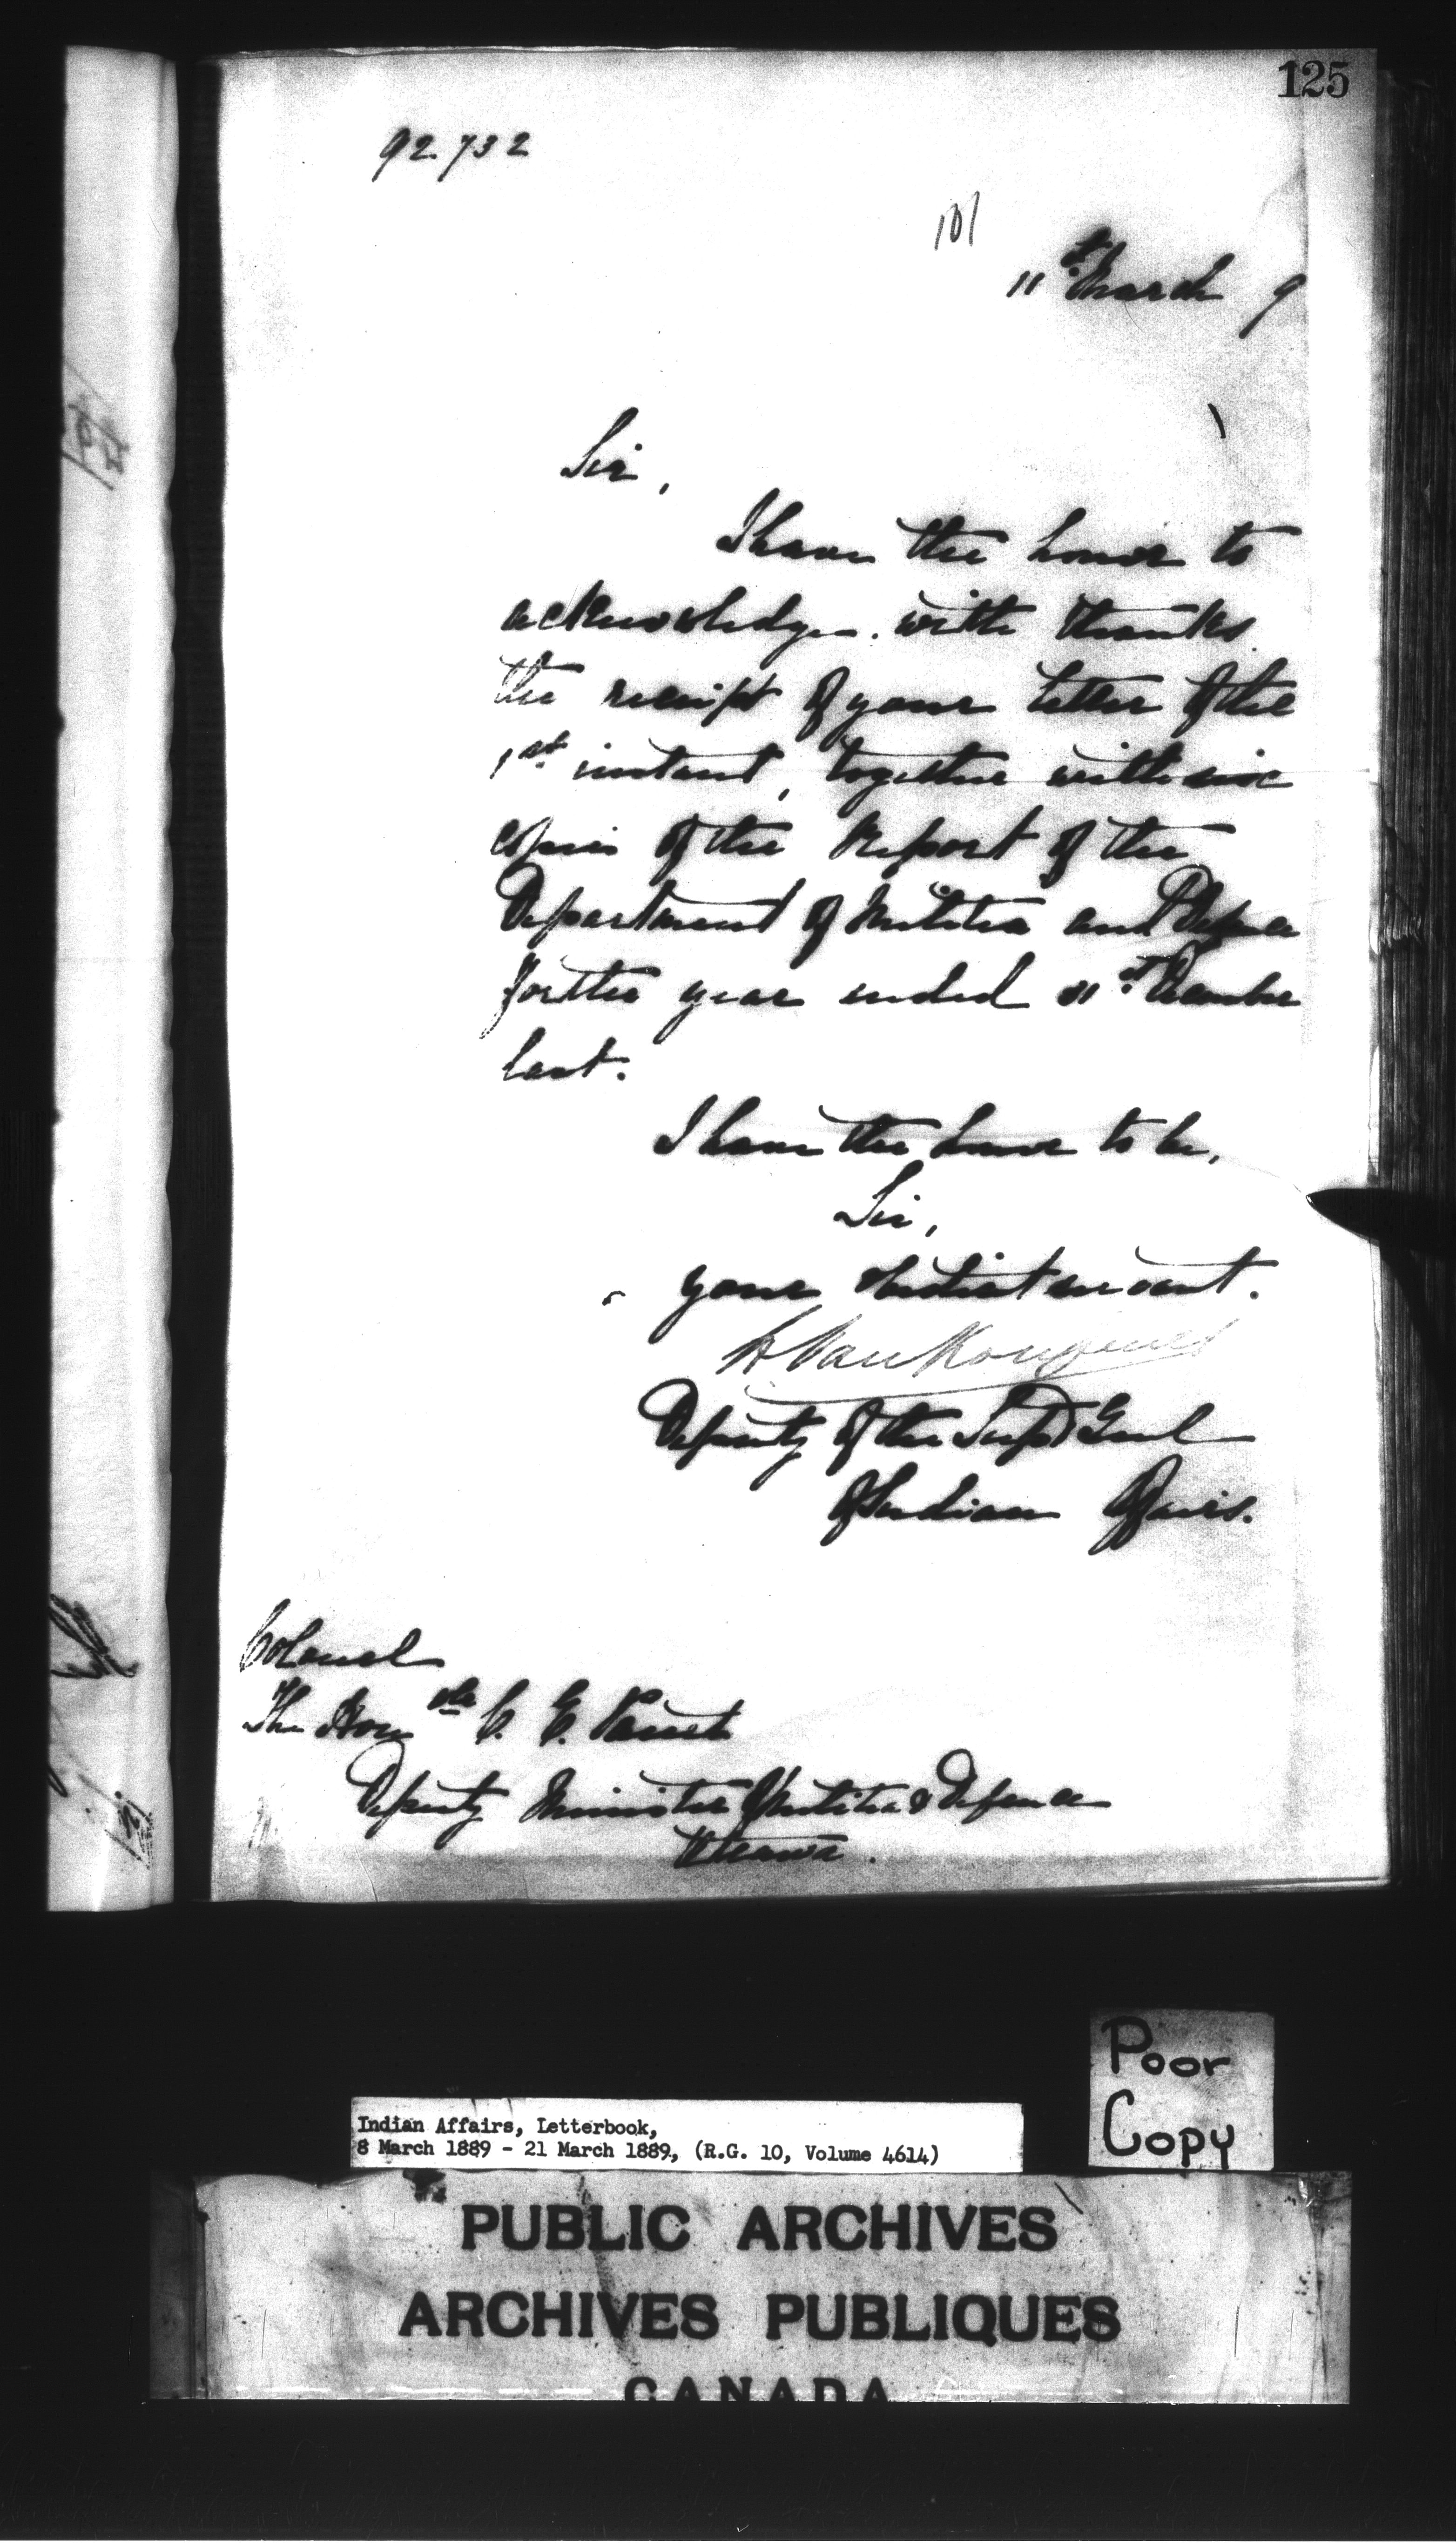 125
92.732
101
11th March 9
Sir,
I have the honor to
acknowledge with thanks
the receipt of your letter of the
1st instant, together with six
copies of the Report of the
Department of Militia and Defence
for the year ended 31st December
last.
I have the honor to be,
Sir,
your obedient servant.
L. VanKoughnet
Deputy of the Supt Genl
of Indian Affairs.
Colonel
The Honble C. E. Panet
Deputy Minister of Militia & Defence
Ottawa.
Poor
Copy
Indian Affairs, Letterbook,
8 March 1889 - 21 March 1889, (R.G. 10, Volume 4614)
PUBLIC ARCHIVES
ARCHIVES PUBLIQUES
CANADA